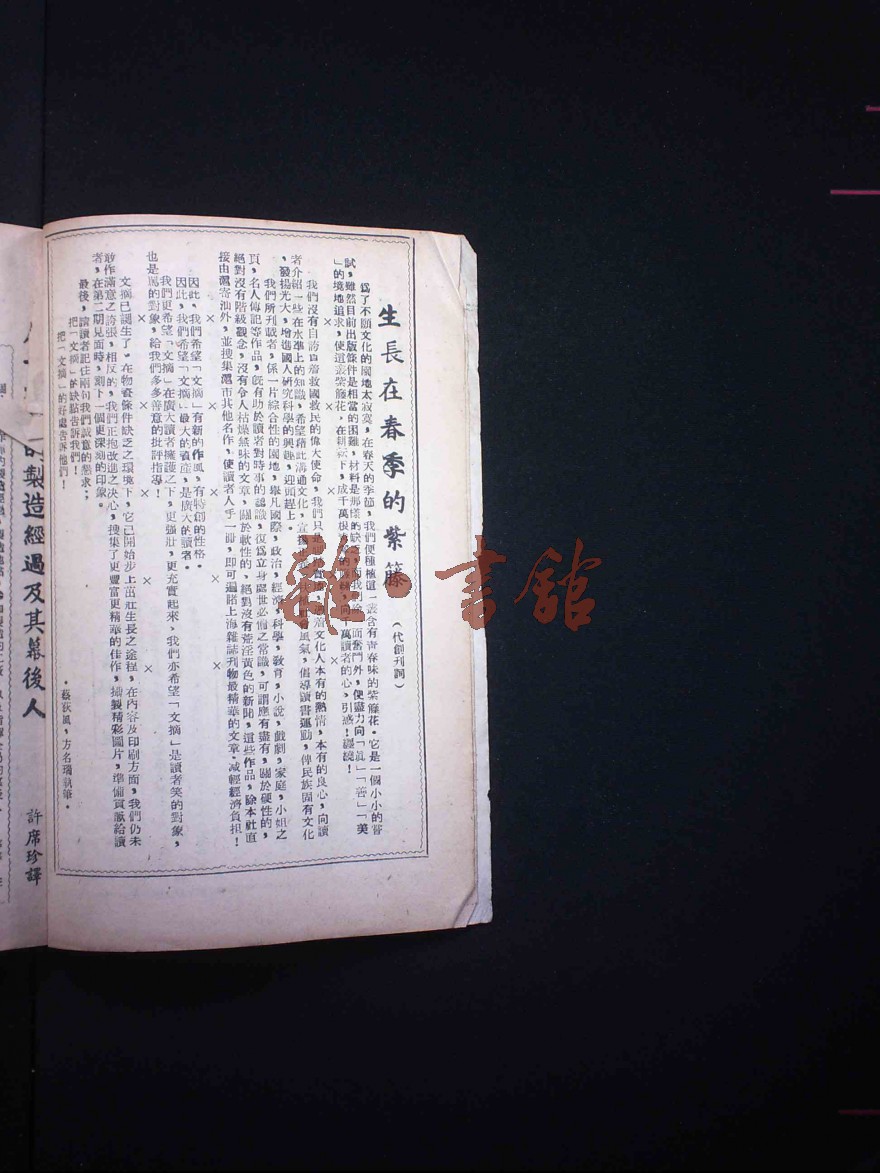 生長在春季的紫籐
(代創刊詞)
爲了不願文化的園地太寂寞,在春天的季節,我們便種植這一叢含有青春味的紫籐花。它是一個小小的嘗
試,雖然目前出版條件是相當的困難,材料是那樣的缺乏,而我們除
而奮鬥外,便盡力向「眞」「善」「美
」的境地追求,使這叢紫籐花,在耕耘下,成千萬根
向千萬讀者的心,引惑!纒繞!
× × × × ×
我們沒有自誇負着救國救民的偉大使命,我們只是
着文化人本有的熱情,本有的良心,向讀
者介紹一些在水準上的知識,希望藉此溝通文化,宣揚
風氣,倡導讀書運動,俾民族固有文化
,發揚光大,增進國人研究科學的興趣,迎頭趕上。
我們所刊載者,係一片綜合性的園地,舉凡國際,政治,經濟,科學,教育,小說,戲劇,家庭,小姐之
頁,名人傳記等作品,旣有助於讀者對時事的認識,復爲立身處世必備之常識,可謂應有盡有,關於硬性的,
絕對沒有階級觀念,沒有令人枯燥無味的文章,關於軟性的,絕對沒有荒淫黃色的新聞,這些作品,除本社直
接由滬寄汕外,並搜集滬市其他名作,使讀者人手一册,即可遍睹上海雜誌刊物最精華的文章。減輕經濟負担!
× × × × ×
因此,我們希望「文摘」有新的作風,有特創的性格。
因此,我們希望「文摘」最大的資產,是廣大的讀者。
我們更希望「文摘」在廣大讀者擁護之下,更强壯,更充實起來,我們亦希望「文摘」是讀者笑的對象,
也是罵的對象,給我們多多善意的批評指導!
× × × × ×
文摘已誕生了。在物資條件缺乏之環境下,它已開始步上茁壯生長之途程,在內容及印刷方面,我們仍未
敢作滿意之誇張,相反的,我們正抱改進之决心,搜集了更豐富更精華的佳作,攝製精彩圖片,準備貢献給讀
者,在第二期見面時,刻下一個更深刻的印象。
最後,請讀者記住兩句我們誠意的懇求;
把「文摘」的缺點告訴我們!
把「文摘」的好處告訴他們!
·蔡荻風,方名璃執筆·
的製造經過及其幕後人
許席珍譯
雜·書館